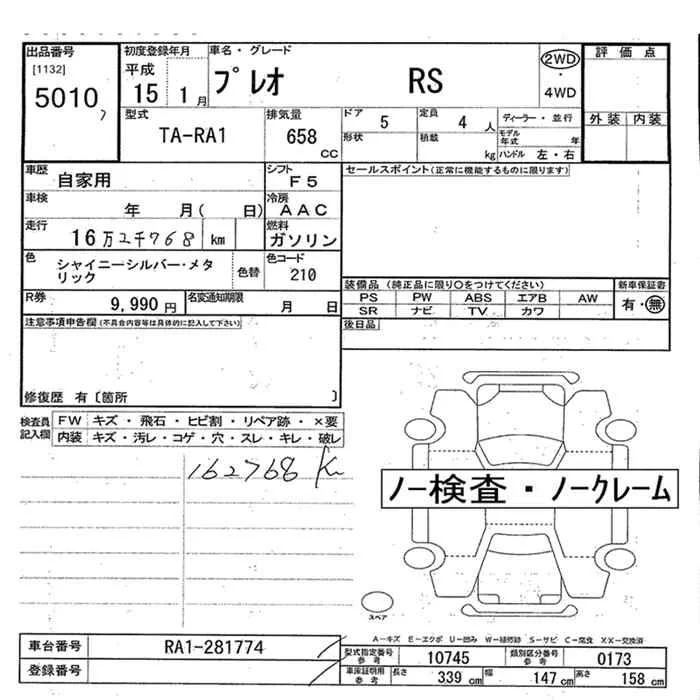 出品番号 初度登録年月 車名・グレード 評価点
[1132] 平成 プレオ RS 2WD
5010 15 1月 ・
4WD
型式 排気量 ドア 5 定員 4人 ディーラー・並行 外装 内装
TA-RA1 658cc 形状 積載 kg モデル年式 年
ハンドル 左・右
車歴 自家用 シフト F5 セールスポイント(正常に機能するものに限ります)
車検 年 月( 日) 冷房 AAC
走行 16万2千768 km 燃料 ガソリン
色 シャイニーシルバー・メタリック 色替 色コード 210
装備品(純正品に限り○をつけてください) 新車保証書
R券 9,990円 名変通知期限 月 日 PS PW ABS エアB AW 有・無
SR ナビ TV カワ
注意事項申告欄(不具合内容等は具体的に記入して下さい) 後日品
修復歴 有〔箇所 〕
検査員記入欄 FW キズ・飛石・ヒビ割・リペア跡・×要
内装 キズ・汚レ・コゲ・穴・スレ・キレ・破レ
162768 K
ノー検査・ノークレーム
スペア
A-キズ E-エクボ U-凹み W-補修跡 S-サビ C-腐食 XX-交換済
車台番号 RA1-281774 型式指定番号 参考 10745 類別区分番号 参考 0173
登録番号 車庫証明用 参考 長さ 339cm 幅 147cm 高さ 158cm